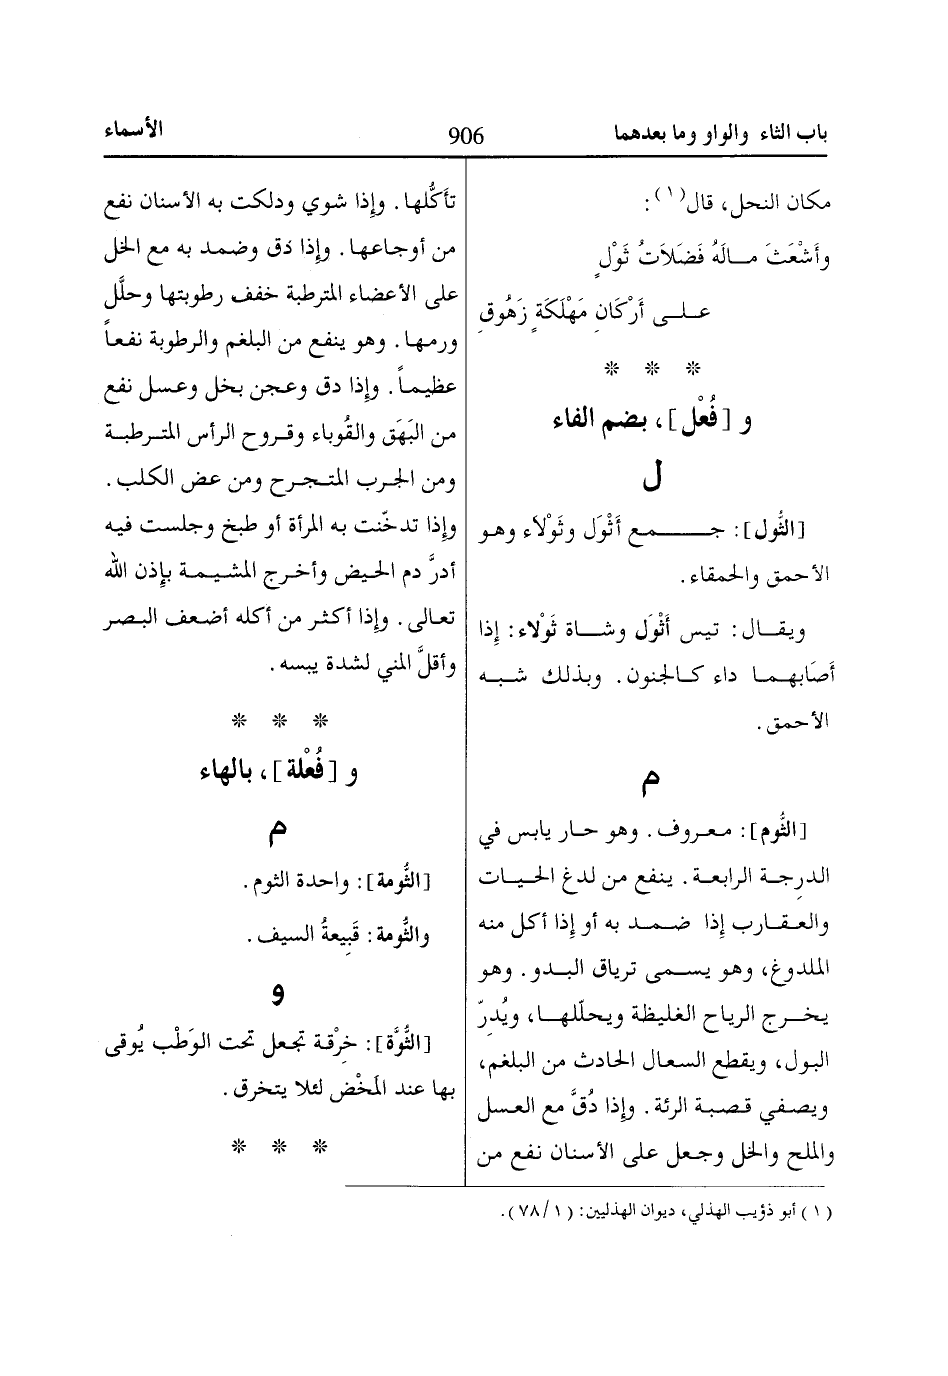 باب الثاء والواو وما بعدهما
906
الأسماء
مكان النحل، قال(١):
وأَشْعَثَ مالَهُ فَضَلَاتُ ثَوْلٍ
على أَرْكَانِ مَهْلَكَةٍ زَهُوقِ
* * *
و [فُعْل]، بضم الفاء
ل
[الثُّول]: جمع أَثْوَل وثَوْلَاء وهو
الأحمق والحمقاء.
ويقال: تيس أَثْوَل وشاة ثَوْلاء: إِذا
أَصَابهما داء كالجنون. وبذلك شبه
الأحمق.
م
[الثُّوم]: معروف. وهو حار يابس في
الدرجة الرابعة. ينفع من لدغ الحيات
والعقارِب إِذا ضمد به أو إِذا أكل منه
الملدوغ، وهو يسمى ترياق البدو. وهو
يخرج الرياح الغليظة ويحلّلها، ويُدرّ
البول، ويقطع السعال الحادث من البلغم،
ويصفي قصبة الرئة. وإِذا دُقَّ مع العسل
والملح والخل وجعل على الأسنان نفع من
تأكُّلها. وإِذا شوي ودلكت به الأسنان نفع
من أوجاعها. وإِذا دَق وضمد به مع الخل
على الأعضاء المترطبة خفف رطوبتها وحلَّل
ورمها. وهو ينفع من البلغم والرطوبة نفعاً
عظيماً. وإِذا دق وعجن بخل وعسل نفع
من البَهَق والقُوباء وقروح الرأس المترطبة
ومن الجرب المتجرح ومن عض الكلب.
وإِذا تدخّنت به المرأة أو طبخ وجلست فيه
أدرَّ دم الحيض وأخرج المشيمة بإِذن الله
تعالى. وإِذا أكثر من أكله أضعف البصر
وأقلَّ المني لشدة يبسه.
* * *
و [فُعْلة]، بالهاء
م
[الثُّومة]: واحدة الثوم.
والثُّومة: قَبِيعةُ السيف.
و
[الثُّوَّة]: خرِْقة تجعل تحت الوَطْب يُوقى
بها عند المَخْض لئلا يتخرق.
* * *
(١) أبو ذؤيب الهذلي، ديوان الهذليين: (١/ ٧٨).